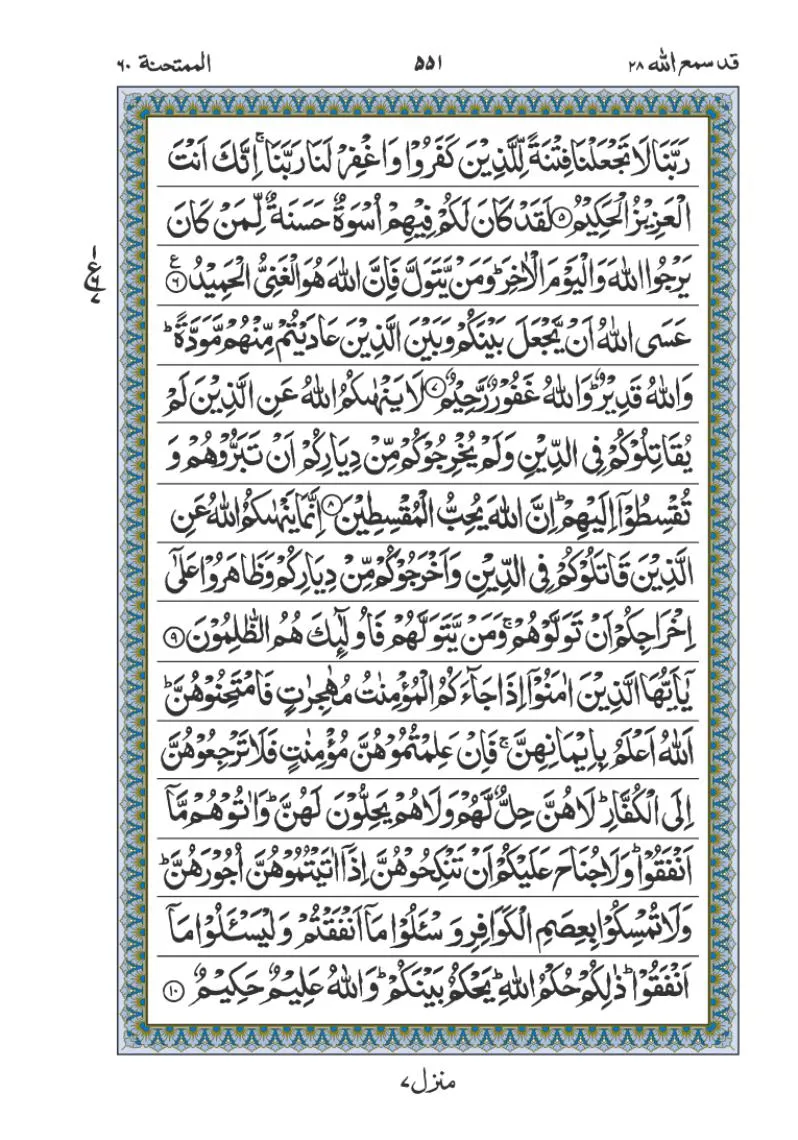 قد سمع الله ٢٨
٥٥١
الممتحنة ٦٠
رَبَّنَا لَا تَجْعَلْنَا فِتْنَةً لِّلَّذِيْنَ كَفَرُوْا وَاغْفِرْ لَنَا رَبَّنَا ۚ اِنَّكَ اَنْتَ
الْعَزِيْزُ الْحَكِيْمُ ۝٥ لَقَدْ كَانَ لَكُمْ فِيْهِمْ اُسْوَةٌ حَسَنَةٌ لِّمَنْ كَانَ
يَرْجُوا اللّٰهَ وَالْيَوْمَ الْاٰخِرَ ؕ وَمَنْ يَّتَوَلَّ فَاِنَّ اللّٰهَ هُوَ الْغَنِيُّ الْحَمِيْدُ ۝٦ ع
عَسَى اللّٰهُ اَنْ يَّجْعَلَ بَيْنَكُمْ وَبَيْنَ الَّذِيْنَ عَادَيْتُمْ مِّنْهُمْ مَّوَدَّةً ؕ
وَاللّٰهُ قَدِيْرٌ ؕ وَاللّٰهُ غَفُوْرٌ رَّحِيْمٌ ۝٧ لَا يَنْهٰىكُمُ اللّٰهُ عَنِ الَّذِيْنَ لَمْ
يُقَاتِلُوْكُمْ فِي الدِّيْنِ وَلَمْ يُخْرِجُوْكُمْ مِّنْ دِيَارِكُمْ اَنْ تَبَرُّوْهُمْ وَ
تُقْسِطُوْۤا اِلَيْهِمْ ؕ اِنَّ اللّٰهَ يُحِبُّ الْمُقْسِطِيْنَ ۝٨ اِنَّمَا يَنْهٰىكُمُ اللّٰهُ عَنِ
الَّذِيْنَ قَاتَلُوْكُمْ فِي الدِّيْنِ وَاَخْرَجُوْكُمْ مِّنْ دِيَارِكُمْ وَظَاهَرُوْا عَلٰۤى
اِخْرَاجِكُمْ اَنْ تَوَلَّوْهُمْ ۚ وَمَنْ يَّتَوَلَّهُمْ فَاُولٰٓئِكَ هُمُ الظّٰلِمُوْنَ ۝٩
يٰۤاَيُّهَا الَّذِيْنَ اٰمَنُوْۤا اِذَا جَآءَكُمُ الْمُؤْمِنٰتُ مُهٰجِرٰتٍ فَامْتَحِنُوْهُنَّ ؕ
اَللّٰهُ اَعْلَمُ بِاِيْمَانِهِنَّ ۚ فَاِنْ عَلِمْتُمُوْهُنَّ مُؤْمِنٰتٍ فَلَا تَرْجِعُوْهُنَّ
اِلَى الْكُفَّارِ ؕ لَا هُنَّ حِلٌّ لَّهُمْ وَلَا هُمْ يَحِلُّوْنَ لَهُنَّ ؕ وَاٰتُوْهُمْ مَّاۤ
اَنْفَقُوْا ؕ وَلَا جُنَاحَ عَلَيْكُمْ اَنْ تَنْكِحُوْهُنَّ اِذَاۤ اٰتَيْتُمُوْهُنَّ اُجُوْرَهُنَّ ؕ
وَلَا تُمْسِكُوْا بِعِصَمِ الْكَوَافِرِ وَسْـَٔلُوْا مَاۤ اَنْفَقْتُمْ وَلْيَسْـَٔلُوْا مَاۤ
اَنْفَقُوْا ؕ ذٰلِكُمْ حُكْمُ اللّٰهِ ؕ يَحْكُمُ بَيْنَكُمْ ؕ وَاللّٰهُ عَلِيْمٌ حَكِيْمٌ ۝١٠
منزل ٧